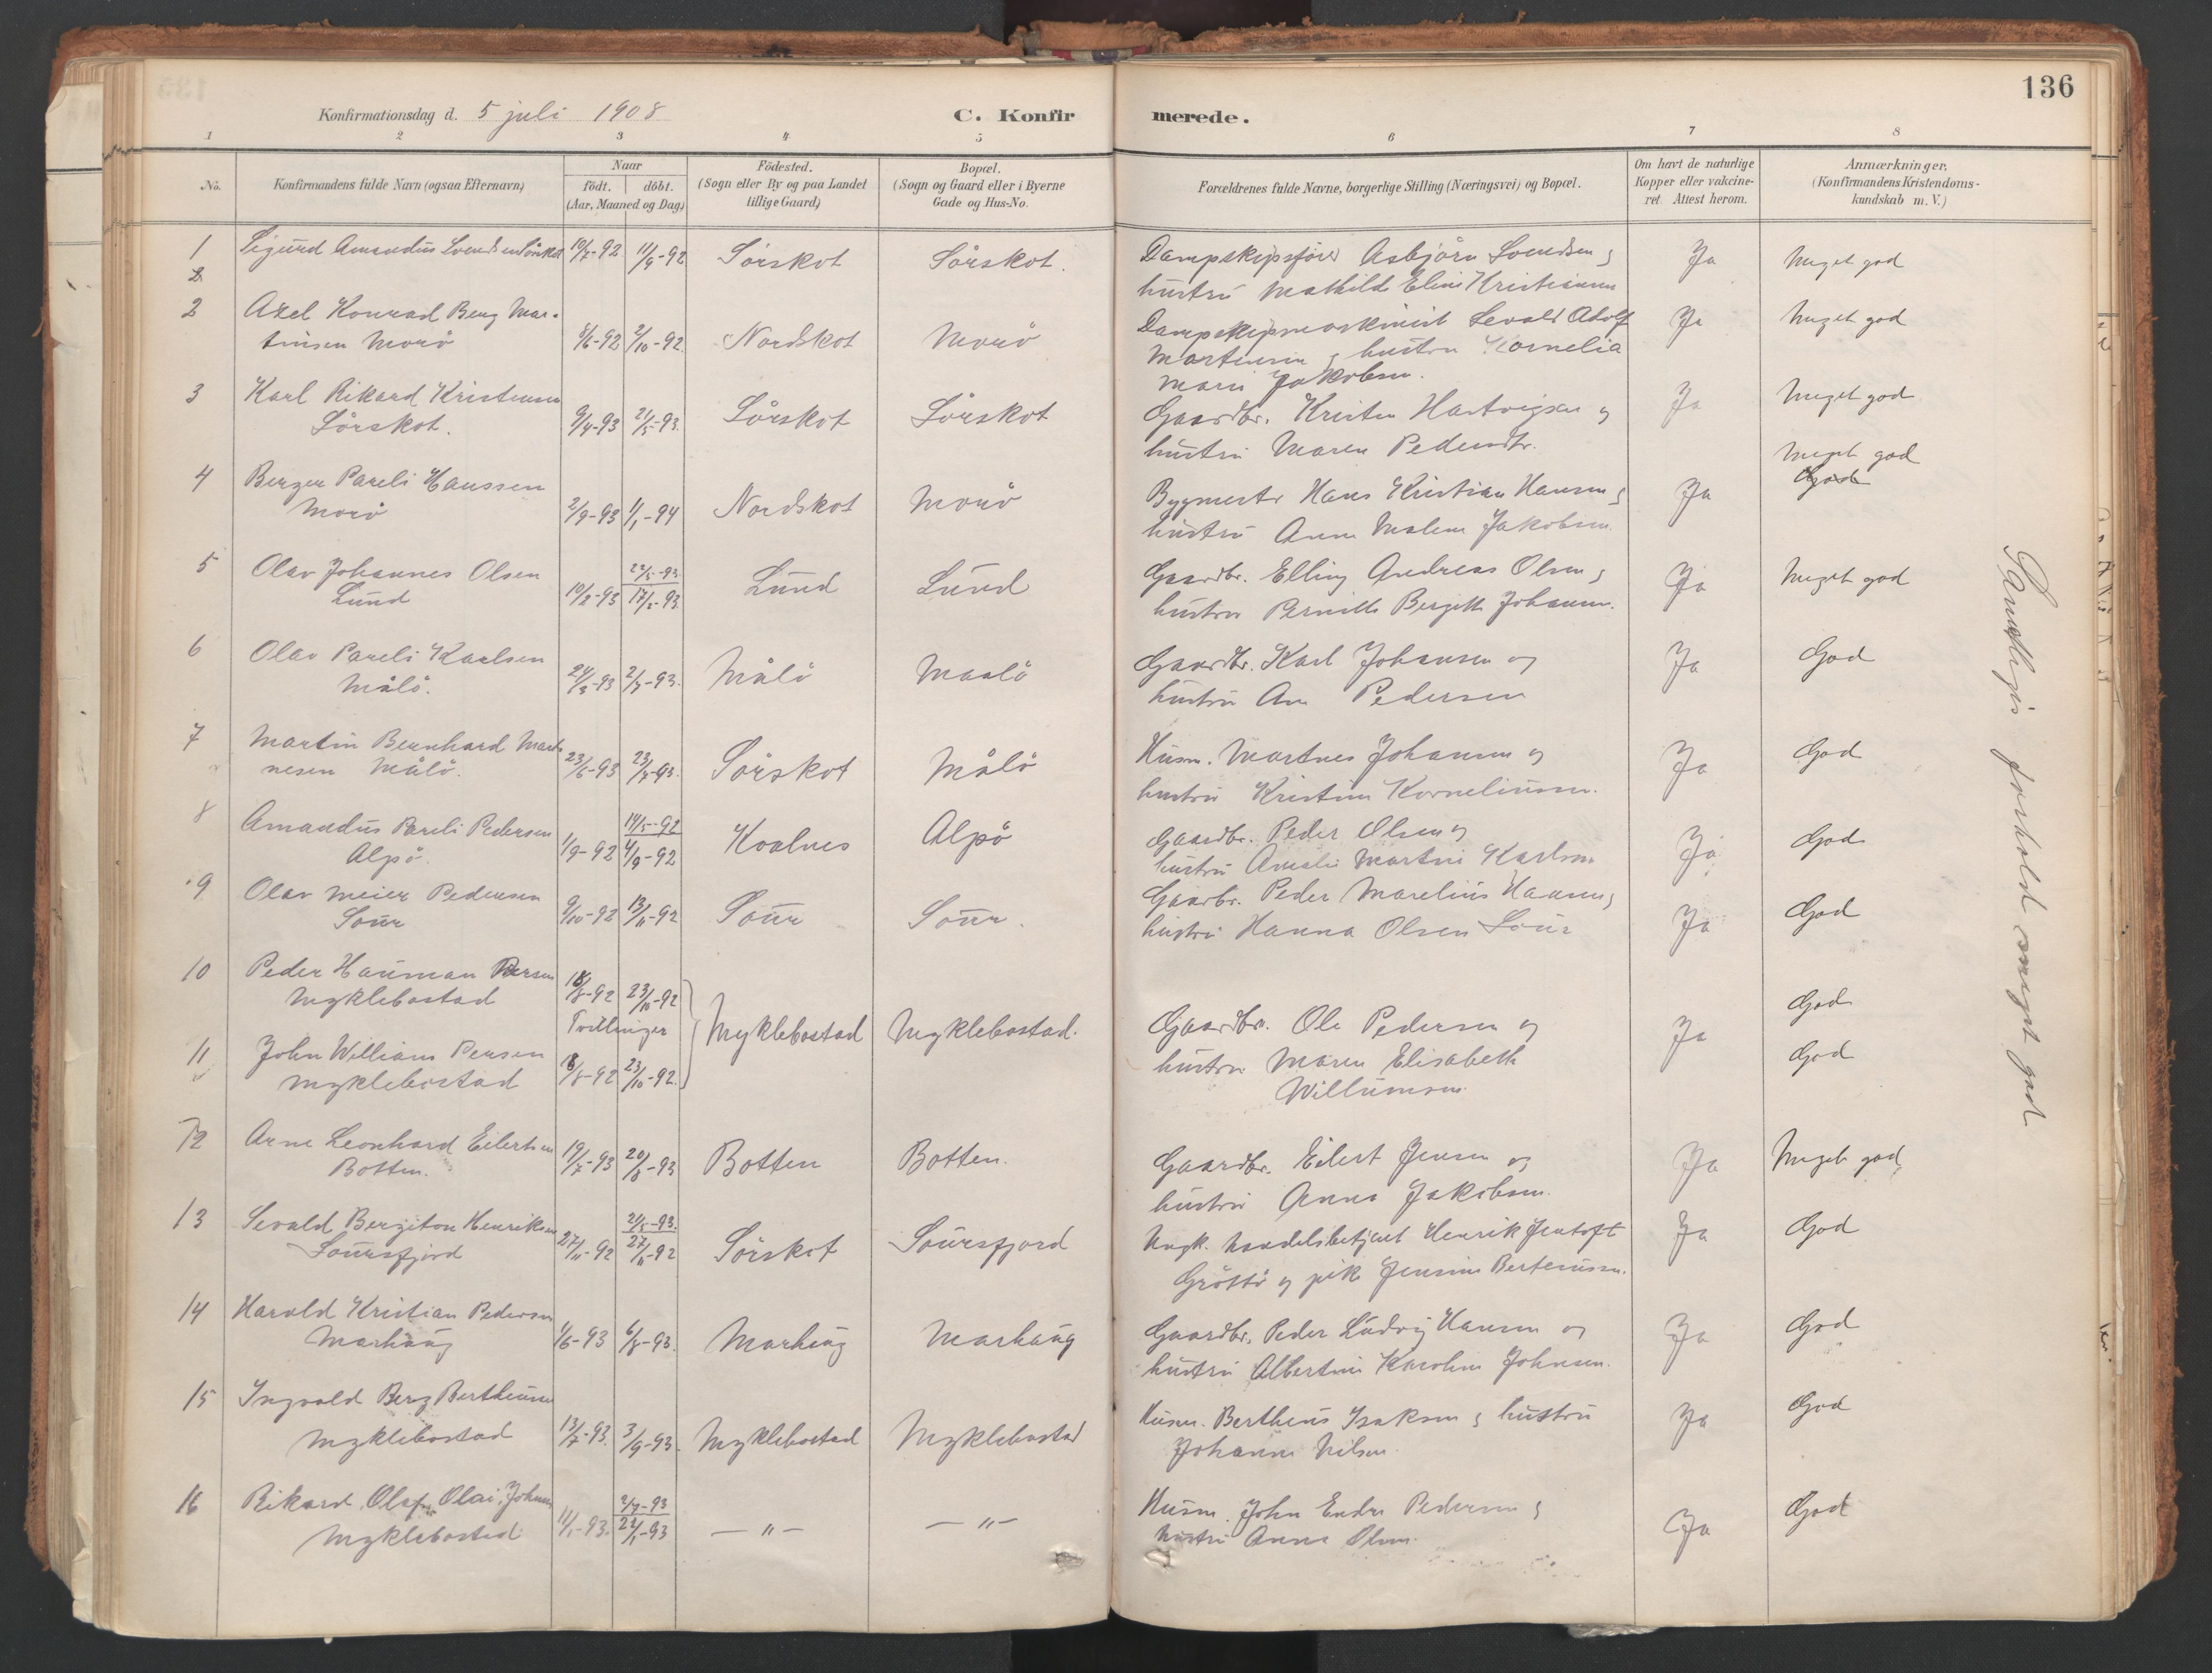 136
Konfirmationsdag d. 5 juli 1908
C. Konfirmerede.
1 2 3 4 5 6 7 8
No.
Konfirmandens fulde Navn (ogsaa Efternavn)
Naar
födt. döbt.
(Aar, Maaned og Dag)
Födested.
(Sogn eller By og paa Landet
tillige Gaard)
Bopæl.
(Sogn og Gaard eller i Byerne
Gade og Hus-No.
Forældrenes fulde Navne, borgerlige Stilling (Næringsvei) og Bopæl.
Om havt de naturlige
Kopper eller vakcine-
ret. Attest herom.
Anmærkninger.
(Konfirmandens Kristendoms-
kundskab m. V.)
1 Sigurd Amandus Svendsen 10/7-92 11/9-92 Sörskot Sörskot. Dampskipsförer Asbjörn Svendsen og Ja Meget god
hustru Mathilde Eline Kristiansen
2 Axel Konrad Berg Mar- Dampskipsmaskinist Sevald Adolf Ja Meget god
tinsen Morö 8/6-92 2/10-92 Nordskot Morö Martensen og hustru Kornelia
Marie Jakobsen.
3 Karl Rikard Kristensen Gaardbr. Kristen Hartvigsen og Ja Meget god
Sörskot. 9/4-93 21/5-93. Sörskot Sörskot hustru Maren Pedersdtr.
4 Berger Pareli Hanssen Bygmester Hans Kristian Hansen og Ja Meget god
Morö 2/9-93 1/1-94 Nordskot Morö hustru Anne Malene Jakobsen
5 Olav Johannes Olsen 22/5-93 Gaardbr. Elling Andreas Olsen og Ja Meget god
Lund 10/2-93 17/2-93 Lund Lund hustru Pernille Bergitte Johansen.
6 Olav Pareli Karlsen Gaardbr. Karl Johansen og Ja God
Målö. 24/3-93 2/7-93. Målö Maalö hustru Ane Pedersen
7 Martin Bernhard Mart- Husm. Martnes Johansen og Ja God
nesen Målö. 23/6-93 23/7-93. Sörskot Målö hustru Kristine Korneliussen.
8 Amandus Pareli Pedersen 14/5-92 Gaardbr. Peder Olsen og Ja God
Alpö. 1/9-92 4/9-92 Koalnes Alpö hustru Amalie Martine Karlsen
9 Olav Meier Pedersen Gaardbr. Peder Marelius Hansen og Ja God
Sour 9/10-92 13/11-92 Sour Sour. hustru Hanna Olsen Sour
10 Peder Hauman Persen 18/8-92 23/10-92 God
Myklebostad Tvillinger Myklebostad Myklebostad. Gaardbr. Ole Pedersen og Ja
11 John William Persen hustru Maren Elisabeth God
Myklebostad 18/8-92 23/10-92. Willumsen.
12 Arne Leonhard Eilertsen Gaardbr. Eilert Jensen og Ja Meget god
Botten. 19/7-93 20/8-93 Botten Botten. hustru Anna Jakobsen.
13 Sevald Bergiton Henriksen 21/5-93. Ungk. handelsbetjent Henrik Jentoft Ja God
Soursfjord 27/11-92 27/11-92 Sörskot Soursfjord Gröttö og pike Jensine Berteussen.
14 Harald Kristian Pedersen Gaardbr. Peder Ludvig Hansen og Ja God
Marhaug 1/6-93 6/8-93. Marhaug Marhaug hustru Albertine Karoline Johnsen.
15 Ingvald Berg Bertheussen Husm. Bertheus Isaksen og hustru Ja God
Myklebostad 13/7-93. 3/9-93. Myklebostad Myklebostad Johanne Nilsen
16 Rikard Olaf Olai Johnsen 2/7-93 Husm. John Endre Pedersen og Ja God
Myklebostad 11/1-93. 22/1-93 — " — — " — hustru Anna Olsen.
Samtliges forhold meget god